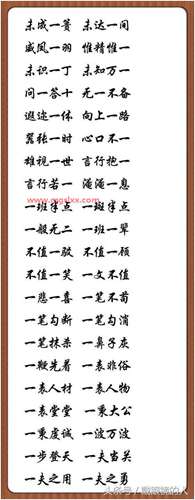 未成一篑 未达一间
威凤一羽 惟精惟一
未识一丁 未知万一
问一答十 无一不备
遐迩一体 向上一路
嚣张一时 心口不一
雄视一世 言行抱一
言行若一 淹淹一息
一班半点 一斑半点
www.gggslxx.com
一般无二 一班一辈
不值一驳 不值一顾
不值一笑 一文不值
一悲一喜 一笔不苟
一笔勾断 一笔勾消
一笔抹杀 一鼻子灰
一鞭先着 一表非俗
一表人材 一表人物
一表堂堂 一秉大公
一秉虔诚 一波万波
一步登天 一夫当关
一夫之用 一夫之勇
头条号